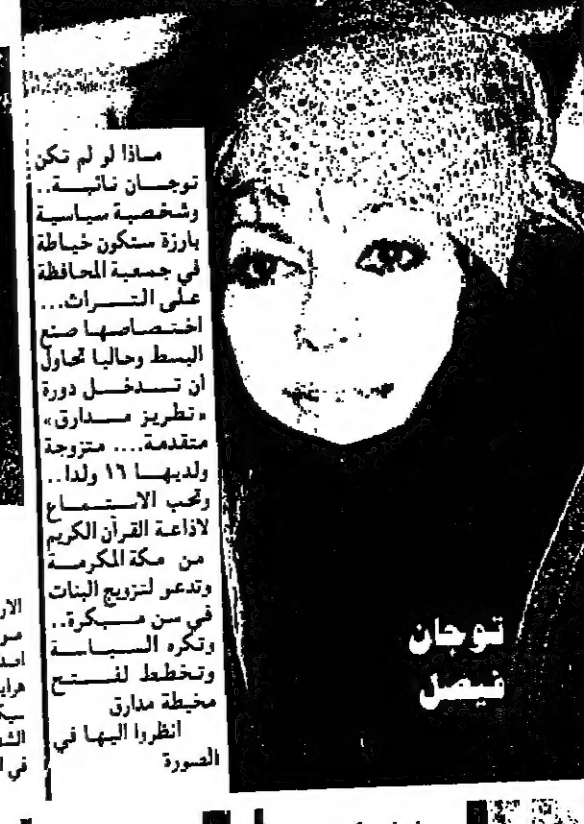 مــاذا لو لم تكن
توجــان نائبــة..
وشخصية سياسية
بارزة ستكون خياطة
في جمعية المحافظة
على التـــراث...
اختـصـاصـهـا صنع
البسط وحاليا تحاول
ان تـــدخـــل دورة
«تطريز مـــدارق»
متقدمة.... متزوجة
ولديهــا ١٦ ولدا..
وتحب الاستـمـاع
لاذاعة القرآن الكريم
من مكة المكرمــة
وتدعو لتزويج البنات
في سن مـبـكـرة..
وتكره السيــاسـة
وتـخـطـط لفـتـح
مخيطة مدارق
انظروا اليهـا في
الصورة
تـوجان
فيصل
الار